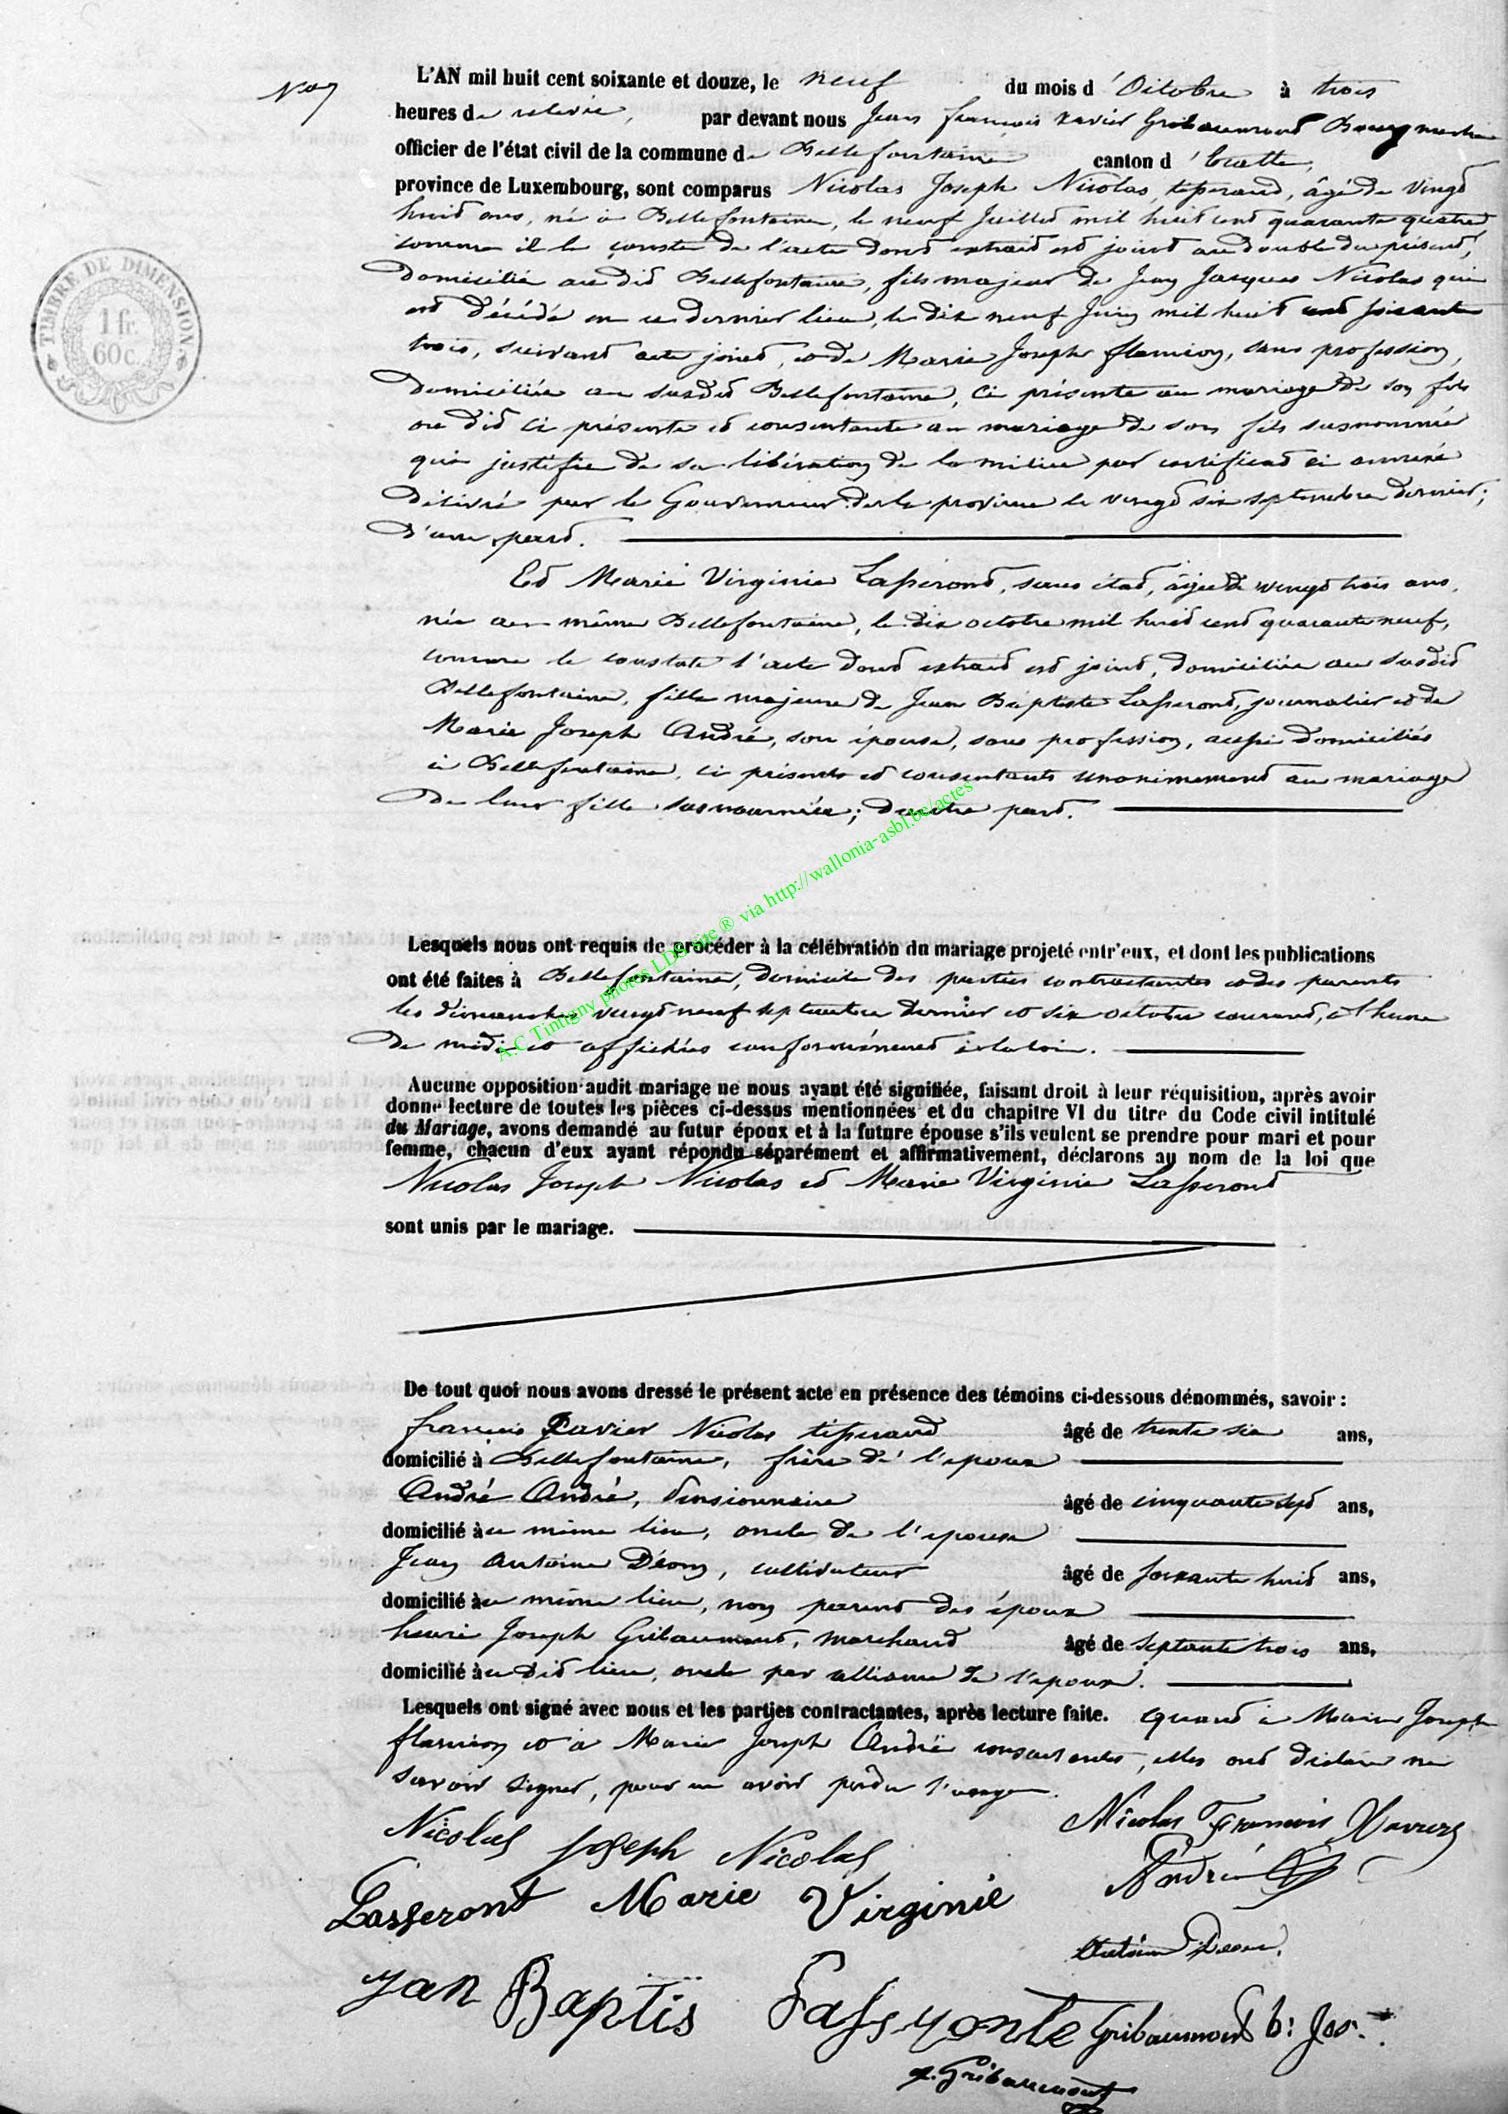 N° 7
L'AN mil huit cent soixante et douze, le neuf du mois d'Octobre à trois
heures de relevée, par devant nous Jean françois xavier Gribaumont Bourgmestre
officier de l'état civil de la commune de Bellefontaine canton d'Etalle,
province de Luxembourg, sont comparus Nicolas Joseph Nicolas, tisserand, âgé de vingt
huit ans, né à Bellefontaine, le neuf Juillet mil huit cent quarante quatre
comme il le conste de l'acte dont extrait est joint au double du présent,
domicilié au dit Bellefontaine, fils majeur de Jean Jacques Nicolas qui
est décédé en ce dernier lieu, le dix neuf Juin mil huit cent soixante
trois, suivant acte joint, et de Marie Joseph flamion, sans profession,
domiciliée au susdit Bellefontaine, ci présente au mariage de son fils
ou dit ci présente et consentante au mariage de son fils susnommé
qui justifie de sa libération de la milice par certificat ci annexé
délivré par le Gouverneur de la province le vingt six septembre dernier;
d'une part.
Et Marie Virginie Lasseront, sans état, âgée de vingt trois ans,
née au même Bellefontaine, le dix octobre mil huit cent quarante neuf,
comme le constate l'acte dont extrait est joint, domiciliée au susdit
Bellefontaine, fille majeure de Jean Baptiste Lasseront, journalier et de
Marie Joseph André, son épouse, sans profession, aussi domiciliés
à Bellefontaine, ci présents et consentants unanimement au mariage
de leur fille susnommée; d'autre part.
Lesquels nous ont requis de procéder à la célébration du mariage projeté entr'eux, et dont les publications
ont été faites à Bellefontaine, domicile des parties contractantes et des parents
les dimanches vingt neuf septembre dernier et six octobre courant, à l'heure
de midi et affichées conformément à la loi.
Aucune opposition audit mariage ne nous ayant été signifiée, faisant droit à leur réquisition, après avoir
donné lecture de toutes les pièces ci-dessus mentionnées et du chapitre VI du titre du Code civil intitulé
du Mariage, avons demandé au futur époux et à la future épouse s'ils veulent se prendre pour mari et pour
femme, chacun d'eux ayant répondu séparément et affirmativement, déclarons au nom de la loi que
Nicolas Joseph Nicolas et Marie Virginie Lasseront
sont unis par le mariage.
De tout quoi nous avons dressé le présent acte en présence des témoins ci-dessous dénommés, savoir :
françois Xavier Nicolas tisserand âgé de trente six ans,
domicilié à Bellefontaine, frère de l'époux
André André, Pensionnaire âgé de cinquante sept ans,
domicilié au même lieu, oncle de l'épouse
Jean Antoine Déom, cultivateur âgé de soixante huit ans,
domicilié au même lieu, non parent des époux
henri Joseph Gribaumont, marchand âgé de septante trois ans,
domicilié au dit lieu, oncle par alliance de l'époux.
Lesquels ont signé avec nous et les parties contractantes, après lecture faite. Quant à Marie Joseph
flamion et à Marie Joseph André consentantes, elles ont déclaré ne
savoir signer, pour en avoir perdu l'usage.
Nicolas Joseph Nicolas
Nicolas François Xavier
Lasseront Marie Virginie
André
Antoine Deom.
Jan Baptis Lasseronte
Gribaumont h: Jos:
x. Gribaumont
TIMBRE DE DIMENSION
1 fr.
60 c.
A.C Tintigny photos LDS site ® via http://wallonia-asbl.be/actes